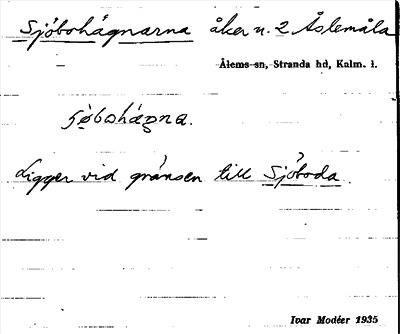 Sjöbohägnarna åker n. 2 Åslemåla
Ålems sn, Stranda hd, Kalm. l.
Ligger vid gränsen till Sjöboda.
Ivar Modéer 1935